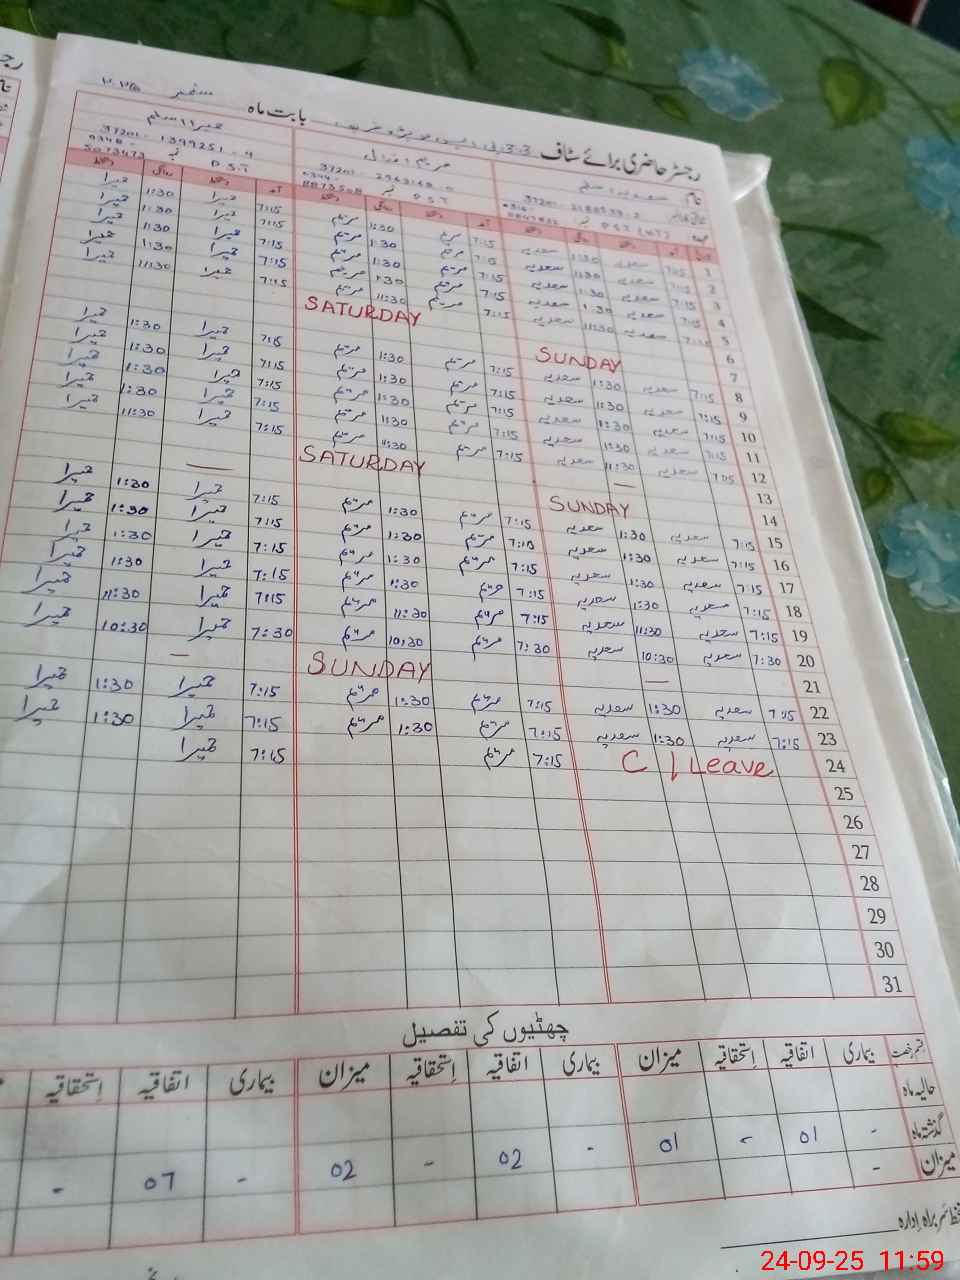 رجسٹر حاضری برائے سٹاف
بابت ماہ ستمبر
نام
سعدیہ
مریم
37201-
PST
PST
تاریخ آمد دستخط روانگی دستخط آمد دستخط روانگی دستخط آمد دستخط روانگی دستخط
1 7:15 سعدیہ 1:30 سعدیہ 7:15 مریم 1:30 مریم 7:15 حمیرا 1:30 حمیرا
2 7:15 سعدیہ 1:30 سعدیہ 7:15 مریم 1:30 مریم 7:15 حمیرا 1:30 حمیرا
3 7:15 سعدیہ 1:30 سعدیہ 7:15 مریم 1:30 مریم 7:15 حمیرا 1:30 حمیرا
4 7:15 سعدیہ 1:30 سعدیہ 7:15 مریم 1:30 مریم 7:15 حمیرا 1:30 حمیرا
5 سعدیہ 11:30 سعدیہ 7:15 مریم 11:30 مریم 7:15 حمیرا 11:30 حمیرا
6 SATURDAY
7 SUNDAY
8 7:15 سعدیہ 1:30 سعدیہ 7:15 مریم 1:30 مریم 7:15 حمیرا 1:30 حمیرا
9 7:15 سعدیہ 1:30 سعدیہ 7:15 مریم 1:30 مریم 7:15 حمیرا 1:30 حمیرا
10 7:15 سعدیہ 1:30 سعدیہ 7:15 مریم 1:30 مریم 7:15 حمیرا 1:30 حمیرا
11 7:15 سعدیہ 1:30 سعدیہ 7:15 مریم 1:30 مریم 7:15 حمیرا 1:30 حمیرا
12 سعدیہ 11:30 سعدیہ 7:15 مریم 11:30 مریم 7:15 حمیرا 11:30 حمیرا
13 — SATURDAY —
14 SUNDAY
15 7:15 سعدیہ 1:30 سعدیہ 7:15 مریم 1:30 مریم 7:15 حمیرا 1:30 حمیرا
16 7:15 سعدیہ 1:30 سعدیہ 7:15 مریم 1:30 مریم 7:15 حمیرا 1:30 حمیرا
17 7:15 سعدیہ 1:30 سعدیہ 7:15 مریم 1:30 مریم 7:15 حمیرا 1:30 حمیرا
18 7:15 سعدیہ 1:30 سعدیہ 7:15 مریم 1:30 مریم 7:15 حمیرا 1:30 حمیرا
19 7:15 سعدیہ 11:30 سعدیہ 7:15 مریم 11:30 مریم 7:15 حمیرا 11:30 حمیرا
20 7:30 سعدیہ 10:30 سعدیہ 7:30 مریم 10:30 مریم 7:30 حمیرا 10:30 حمیرا
21 — SUNDAY —
22 7:15 سعدیہ 1:30 سعدیہ 7:15 مریم 1:30 مریم 7:15 حمیرا 1:30 حمیرا
23 7:15 سعدیہ 1:30 سعدیہ 7:15 مریم 1:30 مریم 7:15 حمیرا 1:30 حمیرا
24 C / Leave 7:15 مریم 7:15 حمیرا
25
26
27
28
29
30
31
چھٹیوں کی تفصیل
قسم رخصت بیماری اتفاقیہ اِستحقاقیہ میزان بیماری اتفاقیہ اِستحقاقیہ میزان بیماری اتفاقیہ اِستحقاقیہ
حالیہ ماہ
گذشتہ ماہ - 01 - 01 - 02 - 02 - 07 -
میزان -
دستخط سربراہ ادارہ
24-09-25 11:59